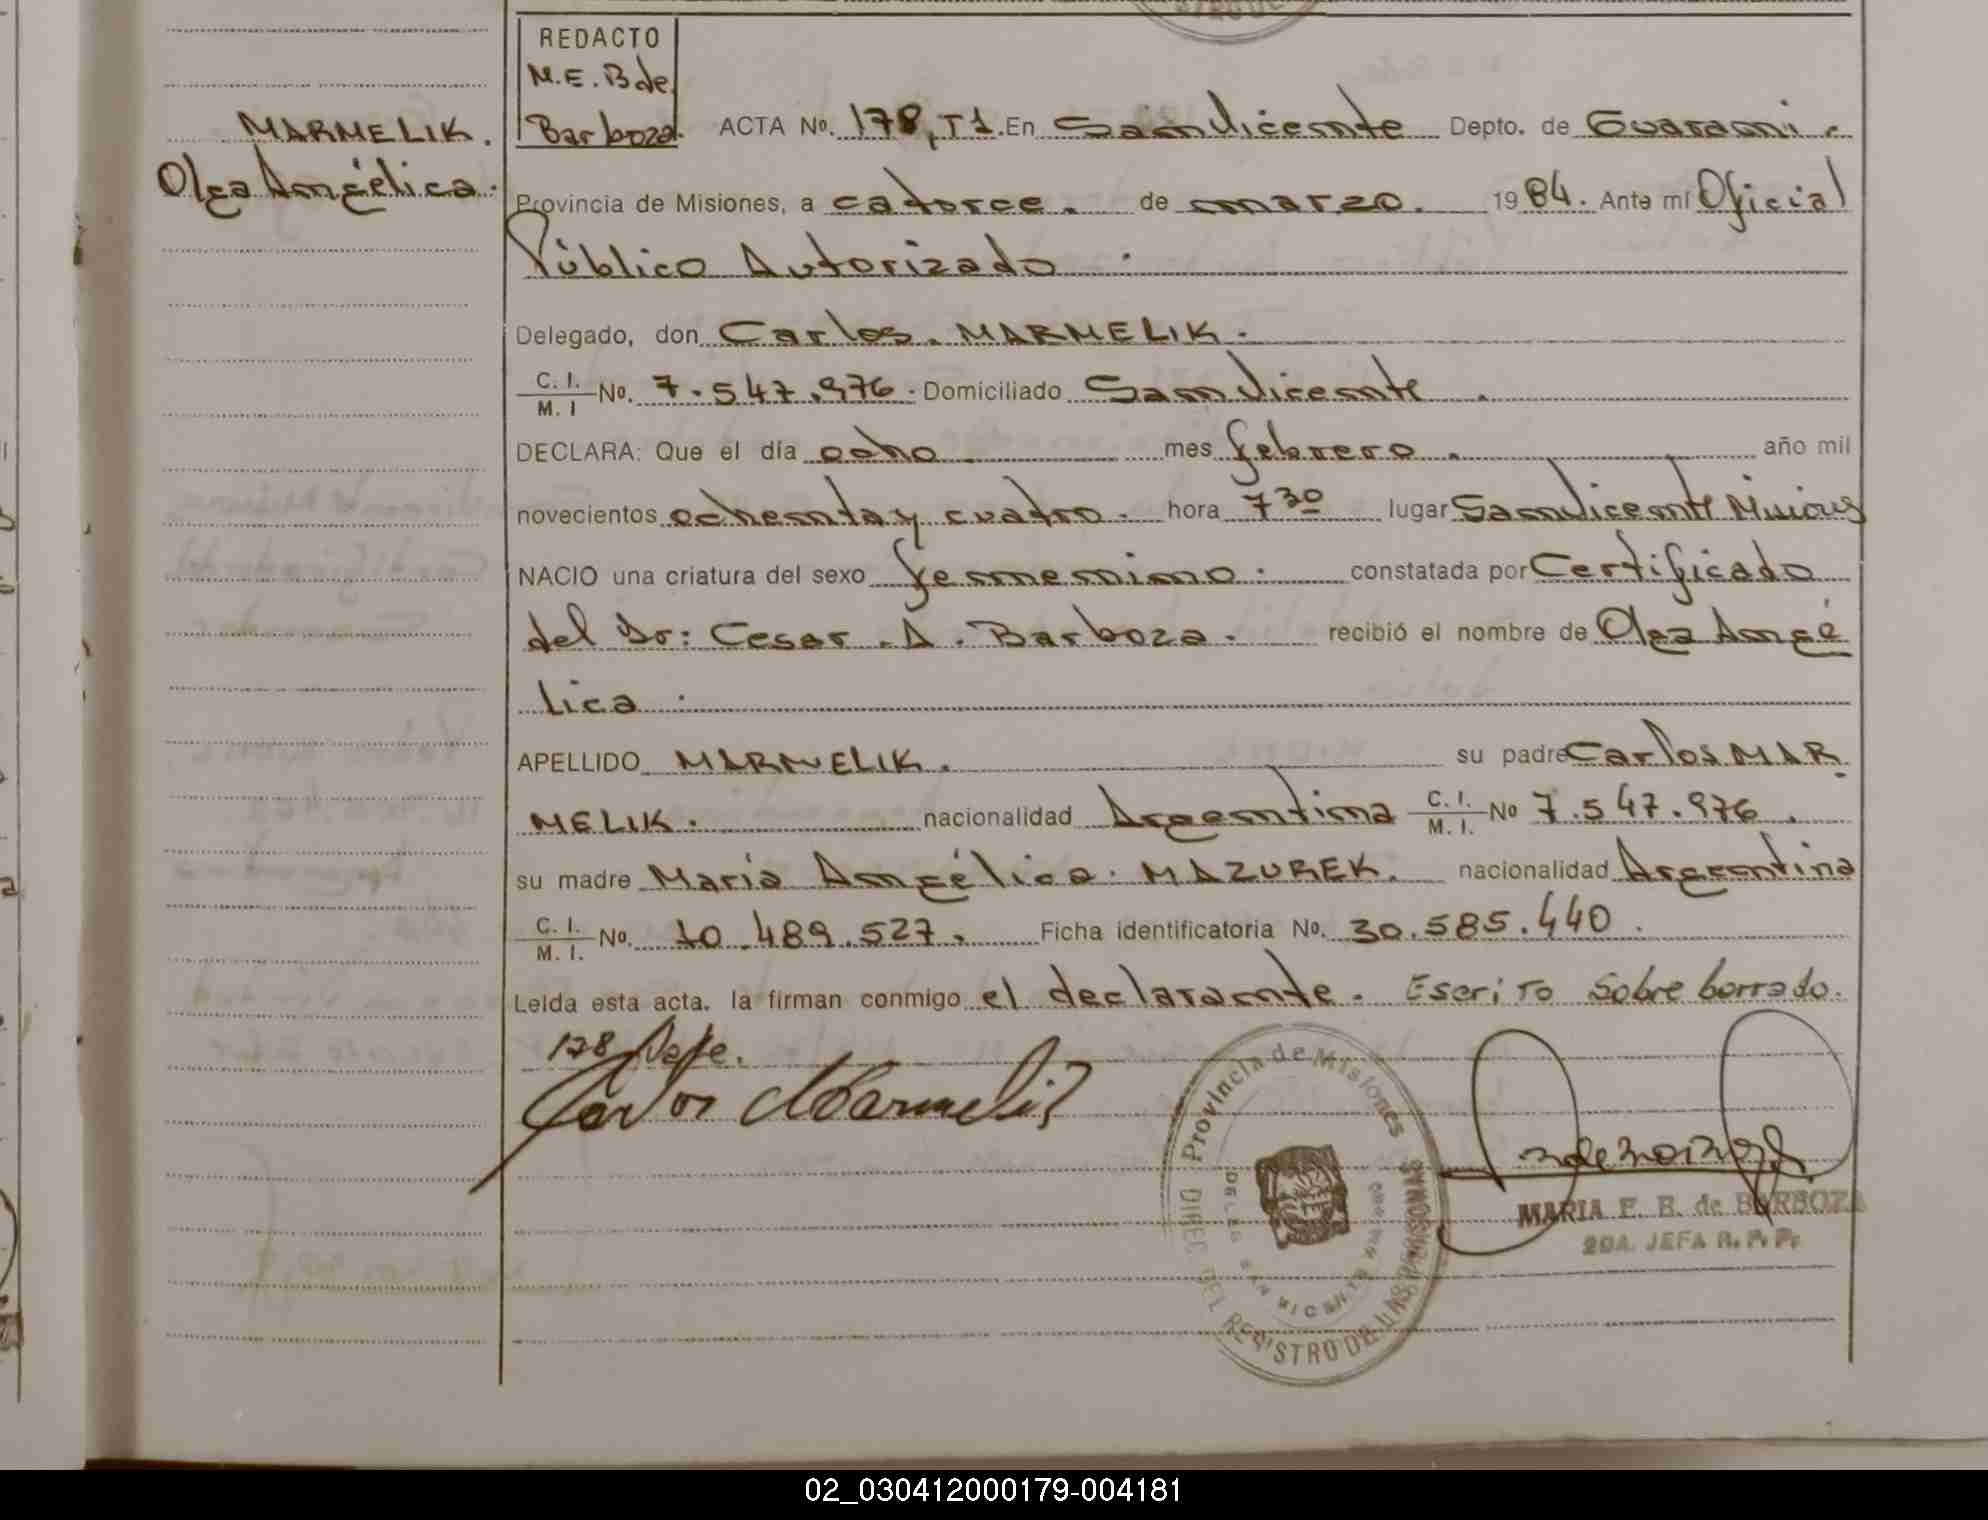 REDACTO
M.E.B de
Barboza.
MARMELIK.
Olga Angélica.
ACTA No. 178, T1. En San Vicente Depto. de Guaraní.
Provincia de Misiones, a catorce. de marzo. 1984. Ante mí Oficial
Público Autorizado.
Delegado, don Carlos. MARMELIK.
C. I. / M. I No. 7.547.976. Domiciliado San Vicente.
DECLARA: Que el día ocho. mes febrero. año mil
novecientos ochenta y cuatro. hora 7 30 lugar San Vicente Misiones
NACIO una criatura del sexo femenino. constatada por Certificado
del Dr: Cesar. A. Barboza. recibió el nombre de Olga Angé
lica.
APELLIDO MARMELIK. su padre Carlos MAR
MELIK. nacionalidad Argentina C. I. / M. I. No 7.547.976.
su madre María Angélica. MAZUREK. nacionalidad Argentina
C. I. / M. I. No. 10.489.527. Ficha identificatoria No. 30.585.440.
Leída esta acta. la firman conmigo el declarante. Escrito sobre borrado.
178 Vale.
Carlos Marmelik
Provincia de Misiones
DIREC. DEL REGISTRO DE LAS PERSONAS
SAN VICENTE
MARIA E. B. de BARBOZA
2DA. JEFA R. P. P.
02_030412000179-004181